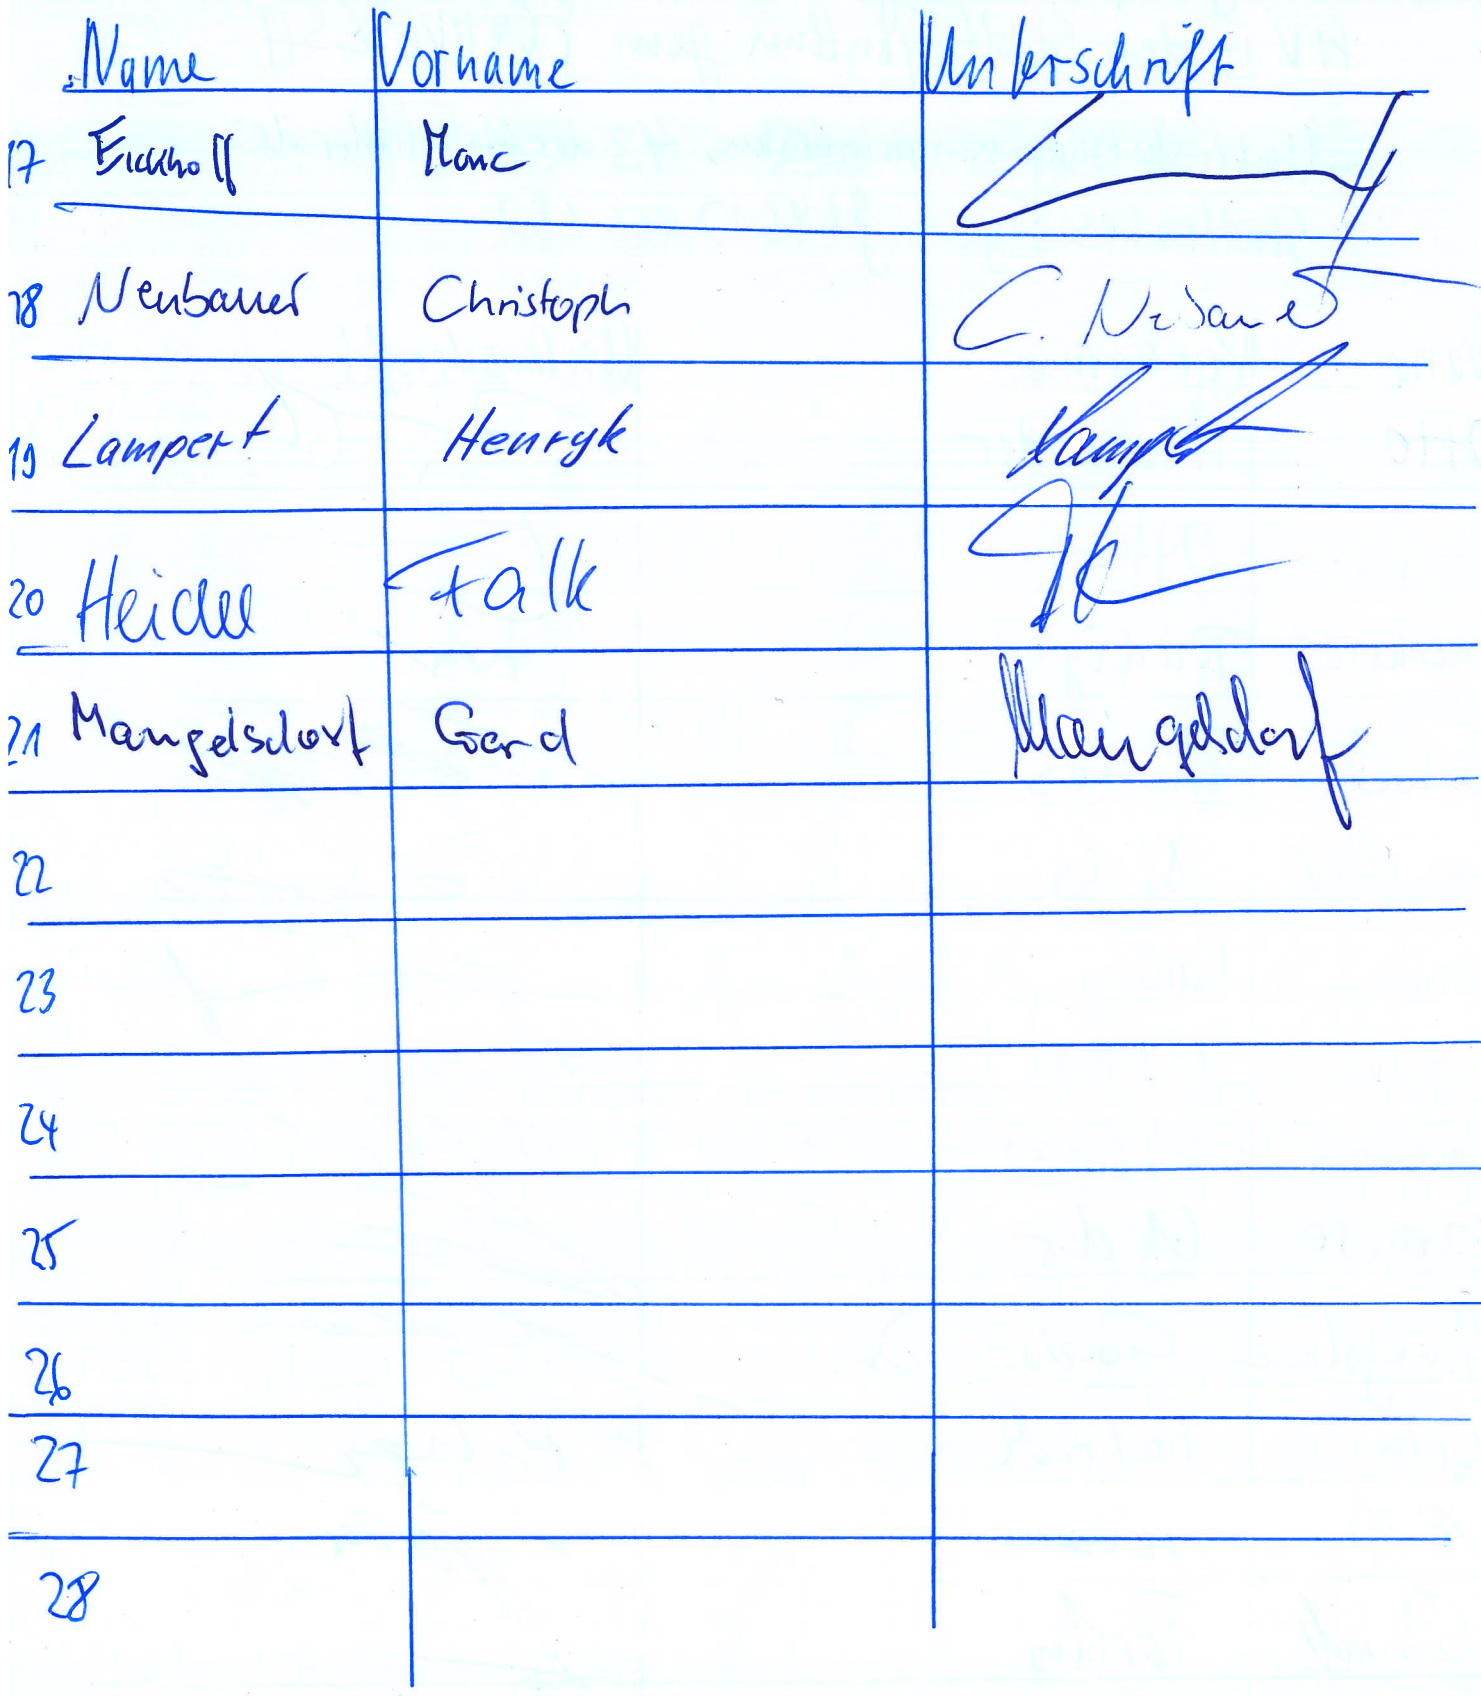 Name Vorname Unterschrift
17 Eickhoff Marc
18 Neubauer Christoph C. Neubauer
19 Lampert Henryk Lampert
20 Heidel Falk
21 Mangelsdorf Gerd Mangelsdorf
22
23
24
25
26
27
28